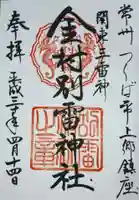 常州 つくば市上郷鎮座
関東三雷神
金村別雷神社
奉拝 平成三年四月十四日